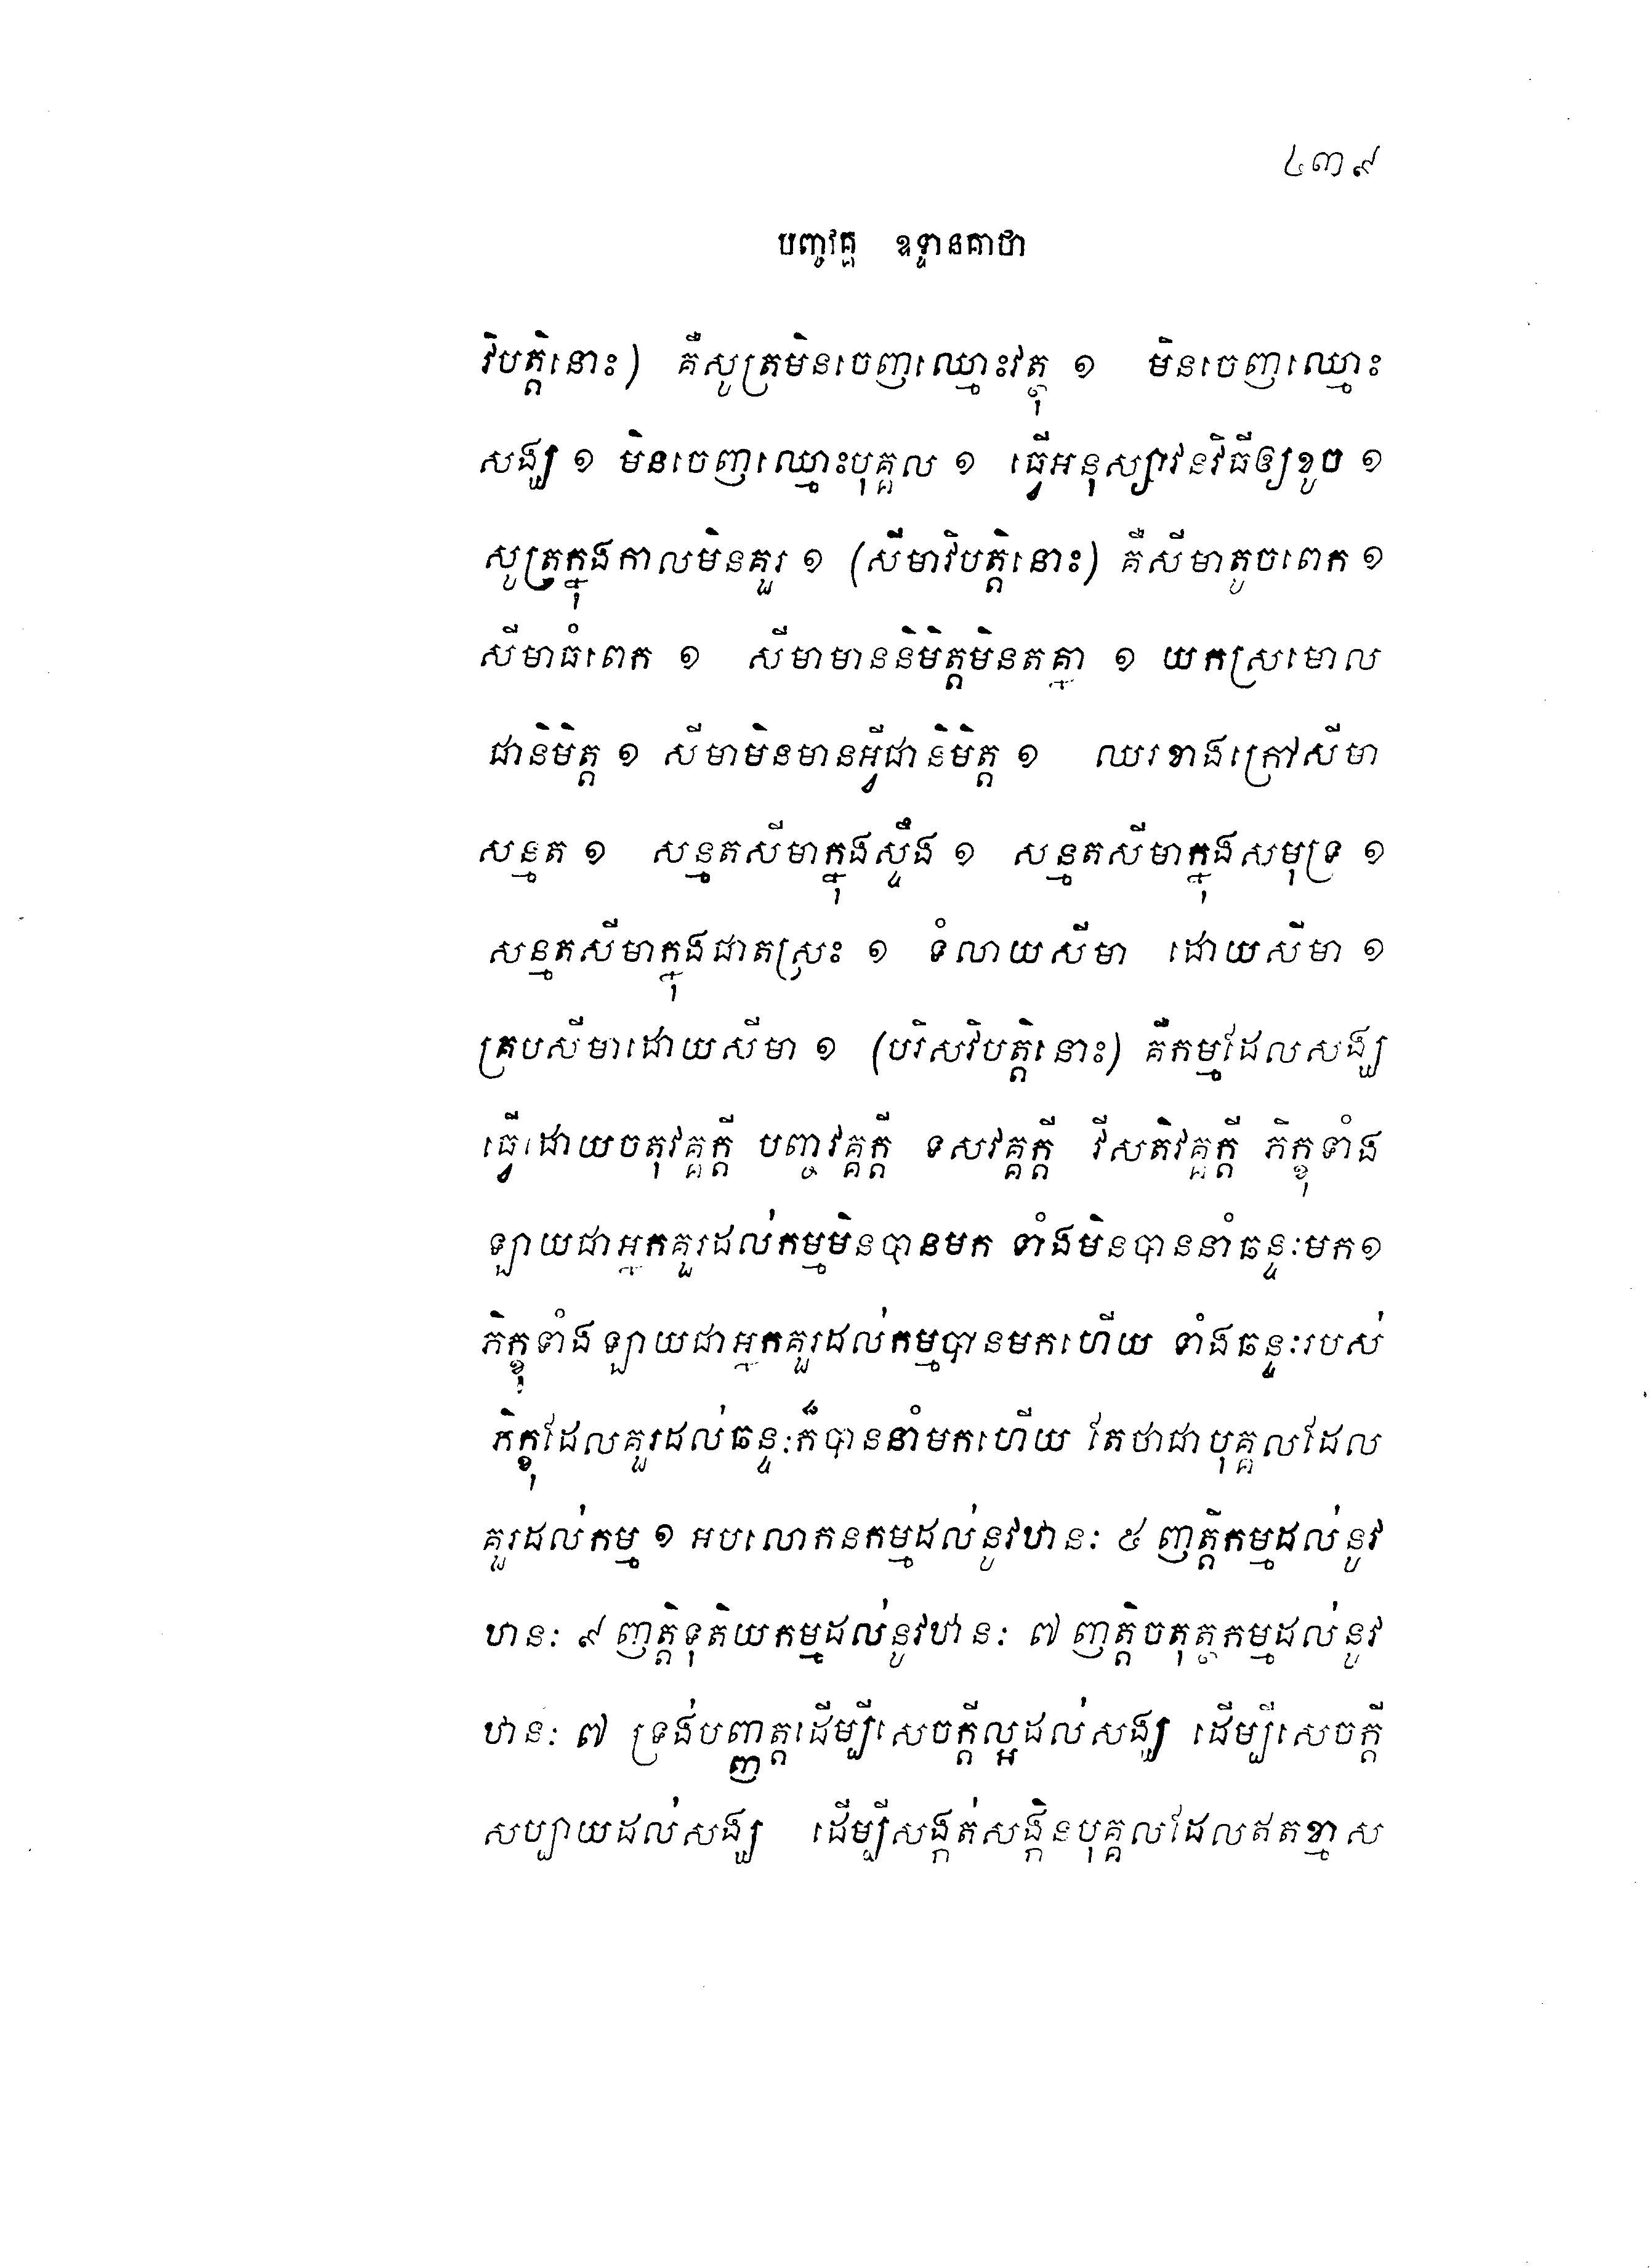 ៤៣៩
បញ្ចវគ្គ ឧទ្ទានគាថា
វិបត្តិនោះ) គឺសូត្រមិនចេញឈ្មោះវត្ថុ ១ មិនចេញឈ្មោះ
សង្ឃ ១ មិនចេញឈ្មោះបុគ្គល ១ ធ្វើអនុស្សាវនវិធីឲ្យខូច ១
សូត្រក្នុងកាលមិនគួរ ១ (សីមាវិបត្តិនោះ) គឺសីមាតូចពេក ១
សីមាធំពេក ១ សីមាមាននិមិត្តមិនតគ្នា ១ យកស្រមោល
ជានិមិត្ត ១ សីមាមិនមានអ្វីជានិមិត្ត ១ ឈរខាងក្រៅសីមា
សន្មត ១ សន្មតសីមាក្នុងស្ទឹង ១ សន្មតសីមាក្នុងសមុទ្រ ១
សន្មតសីមាក្នុងជាតស្រះ ១ ទំលាយសីមា ដោយសីមា ១
គ្របសីមាដោយសីមា ១ (បរិសវិបត្តិនោះ) គឺកម្មដែលសង្ឃ
ធ្វើដោយចតុវគ្គក្តី បញ្ចវគ្គក្តី ទសវគ្គក្តី វីសតិវគ្គក្តី ភិក្ខុទាំង
ឡាយជាអ្នកគួរដល់កម្មមិនបានមក ទាំងមិនបាននាំឆន្ទៈមក១
ភិក្ខុទាំងឡាយជាអ្នកគួរដល់កម្មបានមកហើយ ទាំងឆន្ទៈរបស់
ភិក្ខុដែលគួរដល់ឆន្ទៈក៏បាននាំមកហើយ តែថាជាបុគ្គលដែល
គួរដល់កម្ម ១ អបលោកនកម្មដល់នូវឋានៈ ៥ ញត្តិកម្មដល់នូវ
ឋានៈ ៩ ញត្តិទុតិយកម្មដល់នូវឋានៈ ៧ ញត្តិចតុត្ថកម្មដល់នូវ
ឋានៈ ៧ ទ្រង់បញ្ញត្តដើម្បីសេចក្តីល្អដល់សង្ឃ ដើម្បីសេចក្តី
សប្បាយដល់សង្ឃ ដើម្បីសង្កត់សង្កិនបុគ្គលដែលឥតខ្មាស